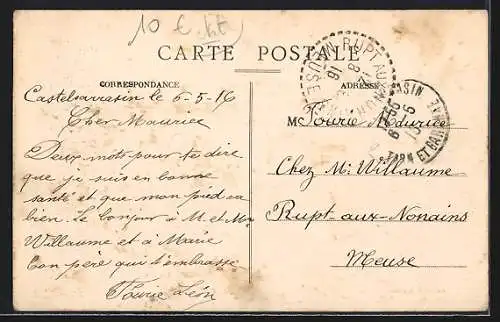 10 € ht
CARTE POSTALE
CORRESPONDANCE
ADRESSE
Castelsarrasin le 6-5-16
Cher Maurice
Deux mots pour te dire
que je suis en bonne
santé et que mon pied en
bien. Le bonjour à M et Mme
Willaume et à Marie
ton père qui t'embrasse
Pourie Léon
M Pourie Maurice
Chez Mr Willaume
Rupt-aux-Nonains
Meuse
RUPT AUX
MEUSE
TARN ET GAR